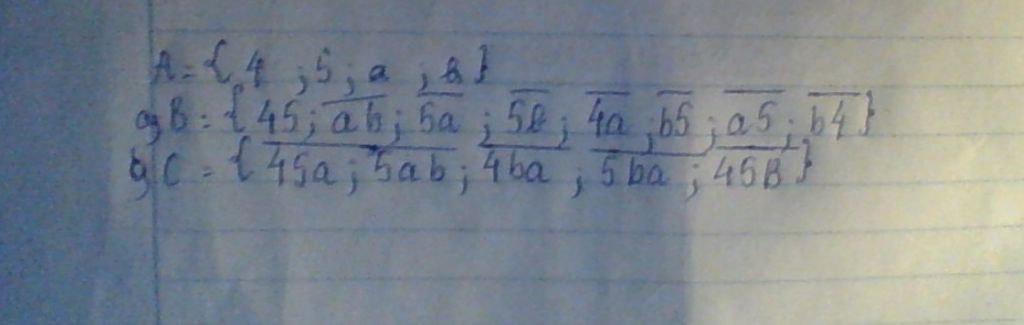 A = { 4 ; 5 ; a ; B }
a) B = { 45; ab; 5a ; 5b; 4a ; b5; a5; b4 }
b) C = { 45a; 5ab; 4ba ; 5ba ; 45B }